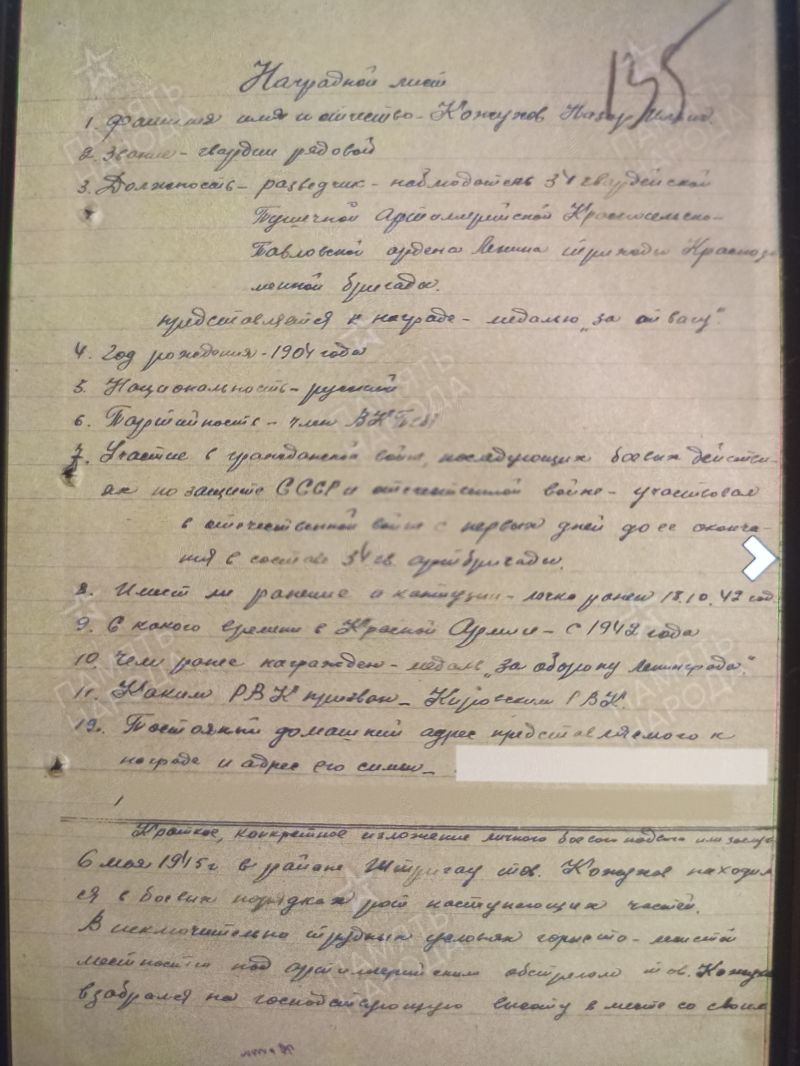 135
Наградной лист
1. Фамилия имя и отчество - Кожухов Назар Ильич.
2. Звание - гвардии рядовой
3. Должность - разведчик - наблюдатель 34 гвардейской
Пушечной Артиллерийской Красносельско-
Павловской ордена Ленина трижды Краснозна
менной бригады.
представляется к награде - медалью „за отвагу".
4. Год рождения - 1904 года
5. Национальность - русский
6. Партийность - член ВКП(б)
7. Участие в гражданской войне, последующих боевых действи-
ях по защите СССР и отечественной войне - участвовал
в отечественной войне с первых дней до ее оконча-
ния в составе 34 гв. артбригады.
8. Имеет ли ранение и контузии - легко ранен 18.10.42 год.
9. С какого времени в Красной Армии - с 1942 года
10. Чем ранее награжден - медаль „за оборону Ленинграда."
11. Каким РВК призван - Кировским РВК.
12. Постояный домашний адрес представляемого к
награде и адрес его семьи -
Краткое, конкретное изложение личного боевого подвига или заслуг
6 мая 1945 г в районе Штригау тов. Кожухов находил
ся в боевых порядках рот наступающих частей.
В исключительно трудных условьях гористо-лесистой
местности под артиллерийским обстрелом тов. Кожухов
взобрался на господствующую высоту вместе со своим
ПАМЯТЬ
НАРОДА